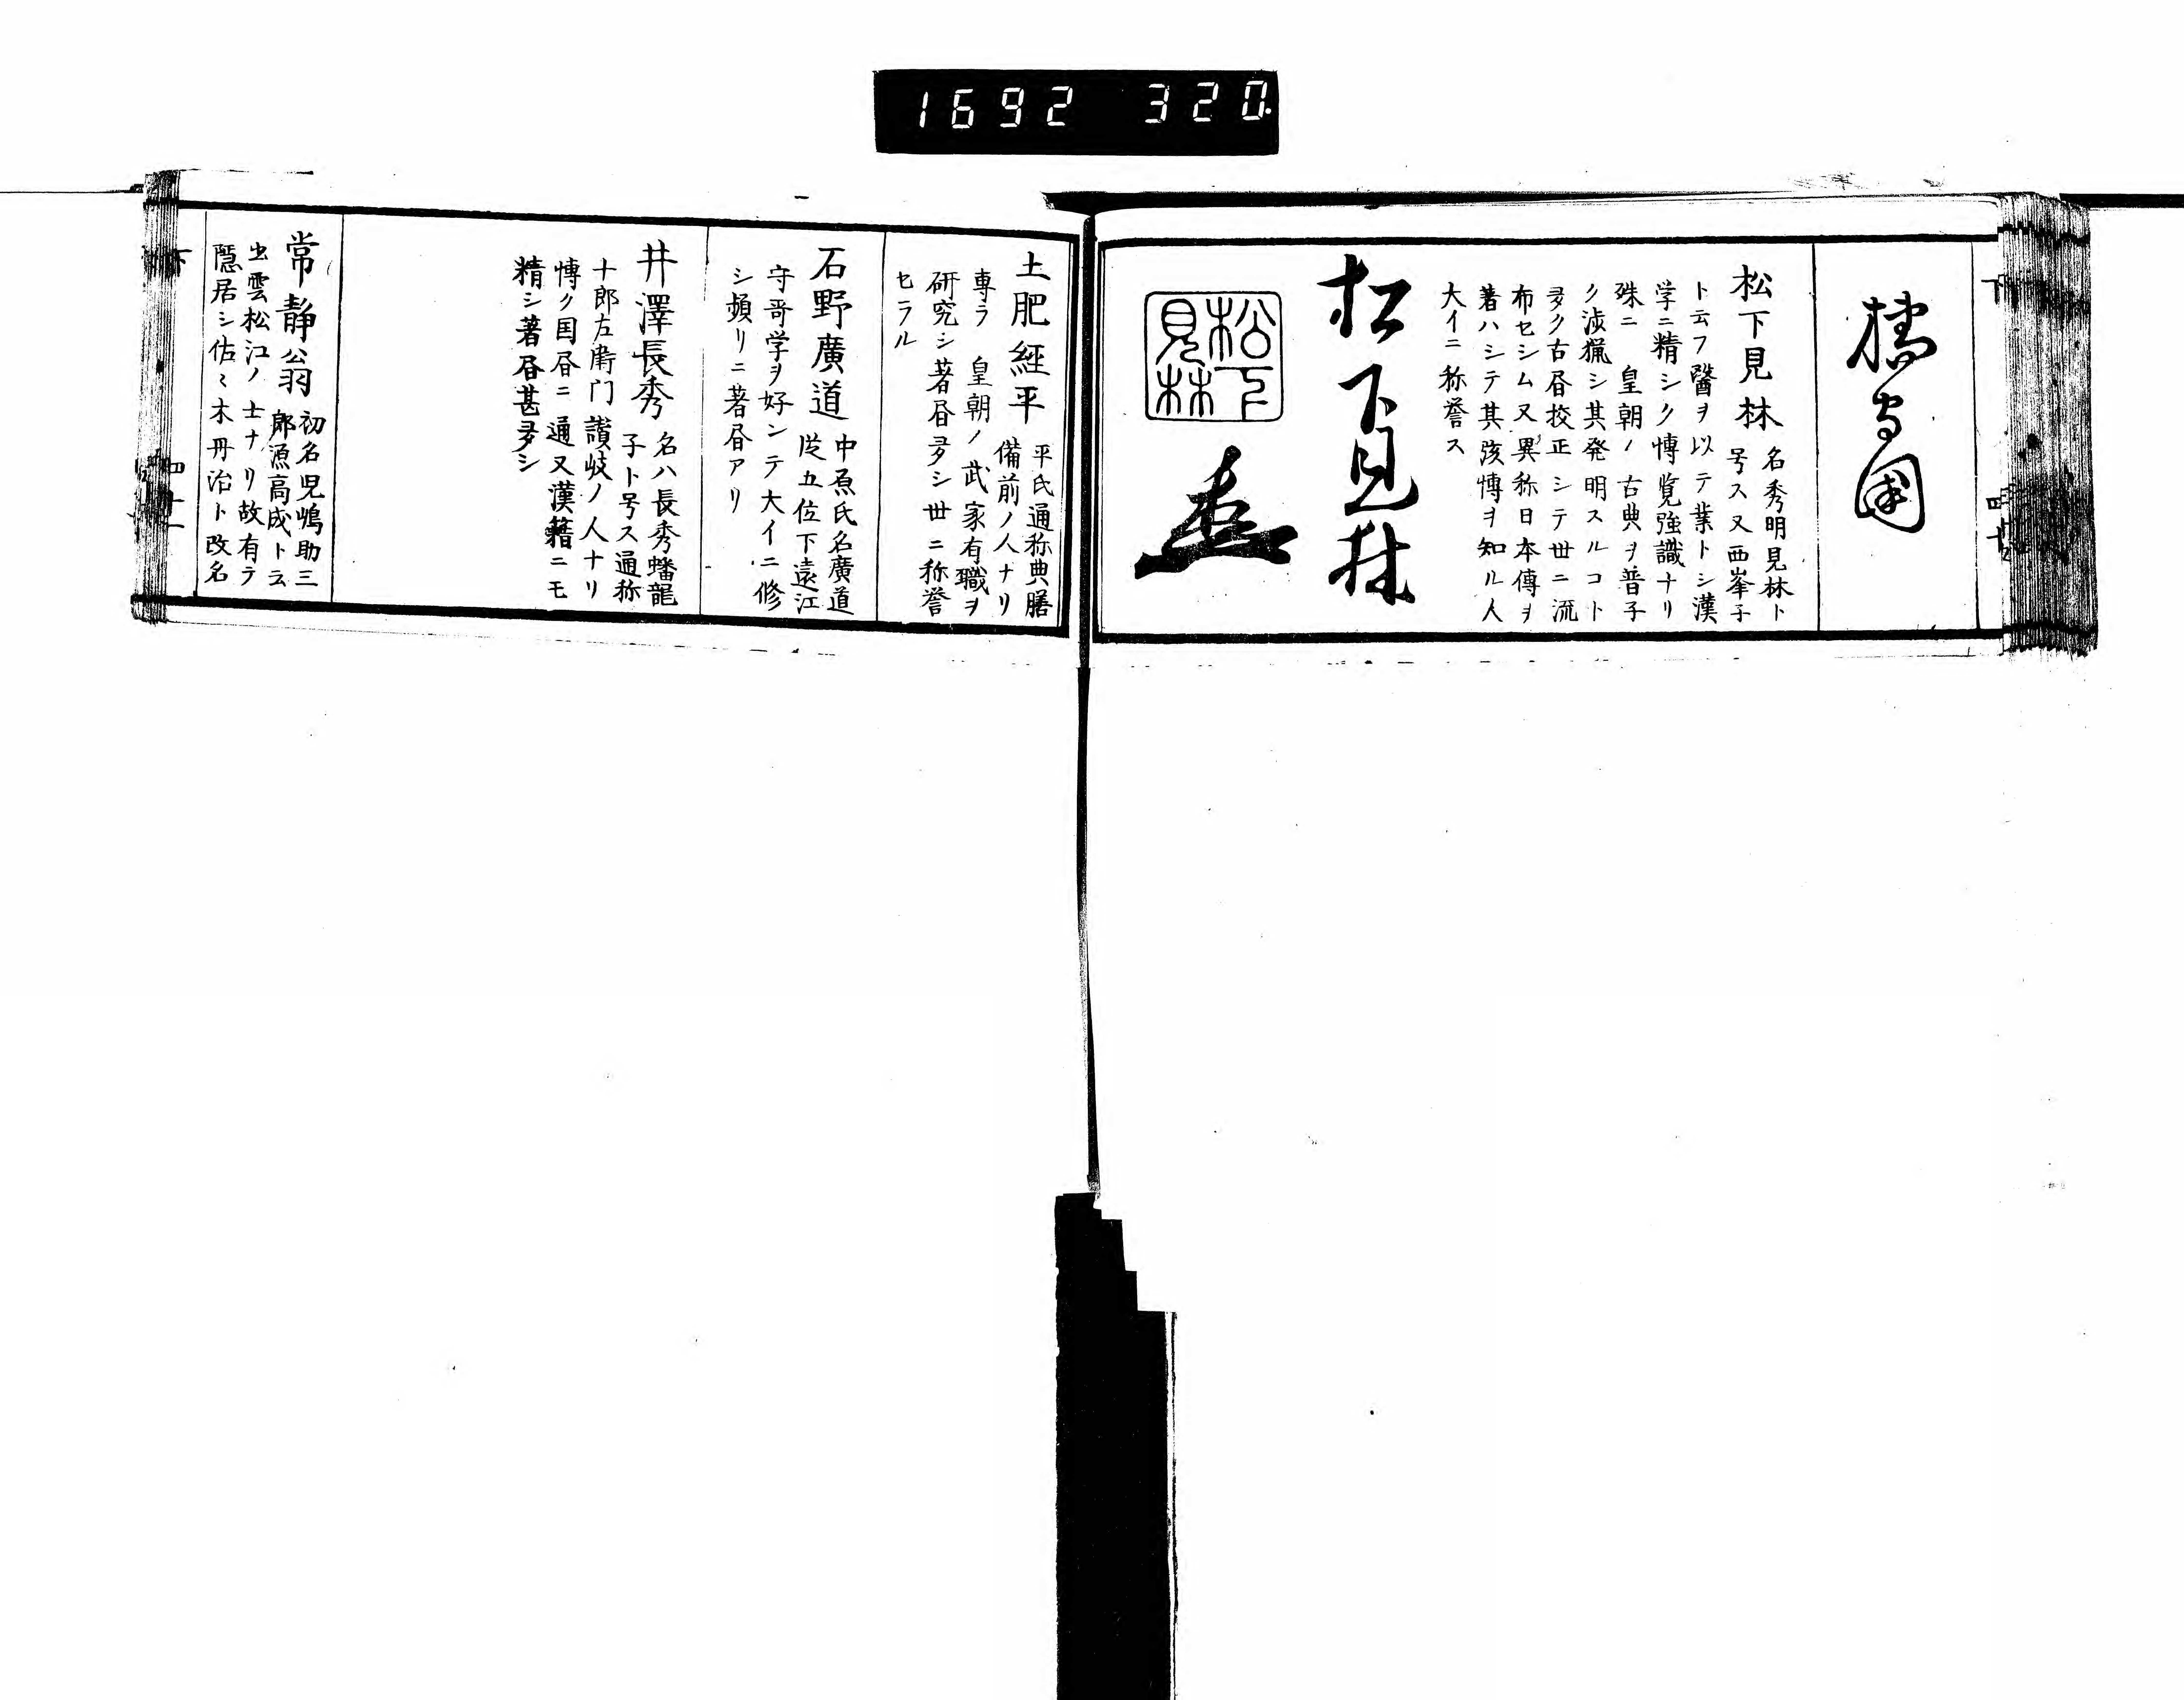 1692 320
下
四十
橘守國
松下見林
名秀明見林ト
号ス又西峯子
ト云フ醫ヲ以テ業トシ漢
学ニ精シク博覧強識ナリ
殊ニ 皇朝ノ古典ヲ普子
ク渉猟シ其発明スルコト
多ク古昼校正シテ丗ニ流
布セシム又異称日本傳ヲ
著ハシテ其該博ヲ知ル人
大イニ称誉ス
松下見林
松下
見林
土肥經平
平氏通称典膳
備前ノ人ナリ
專ラ 皇朝ノ武家有職ヲ
研究シ著昼多シ丗ニ称誉
セラル
石野廣道
中原氏名廣道
従五位下遠江
守哥学ヲ好ンテ大イニ修
シ頻リニ著昼アリ
井澤長秀
名ハ長秀蟠龍
子ト号ス通称
十郎左衛门讃岐ノ人ナリ
博ク国昼ニ通又漢籍ニモ
精シ著昼甚多シ
常静翁
初名児嶋助三
郎源高成ト云
出雲松江ノ士ナリ故有テ
隠居シ佐々木丹治ト改名
下
四十一